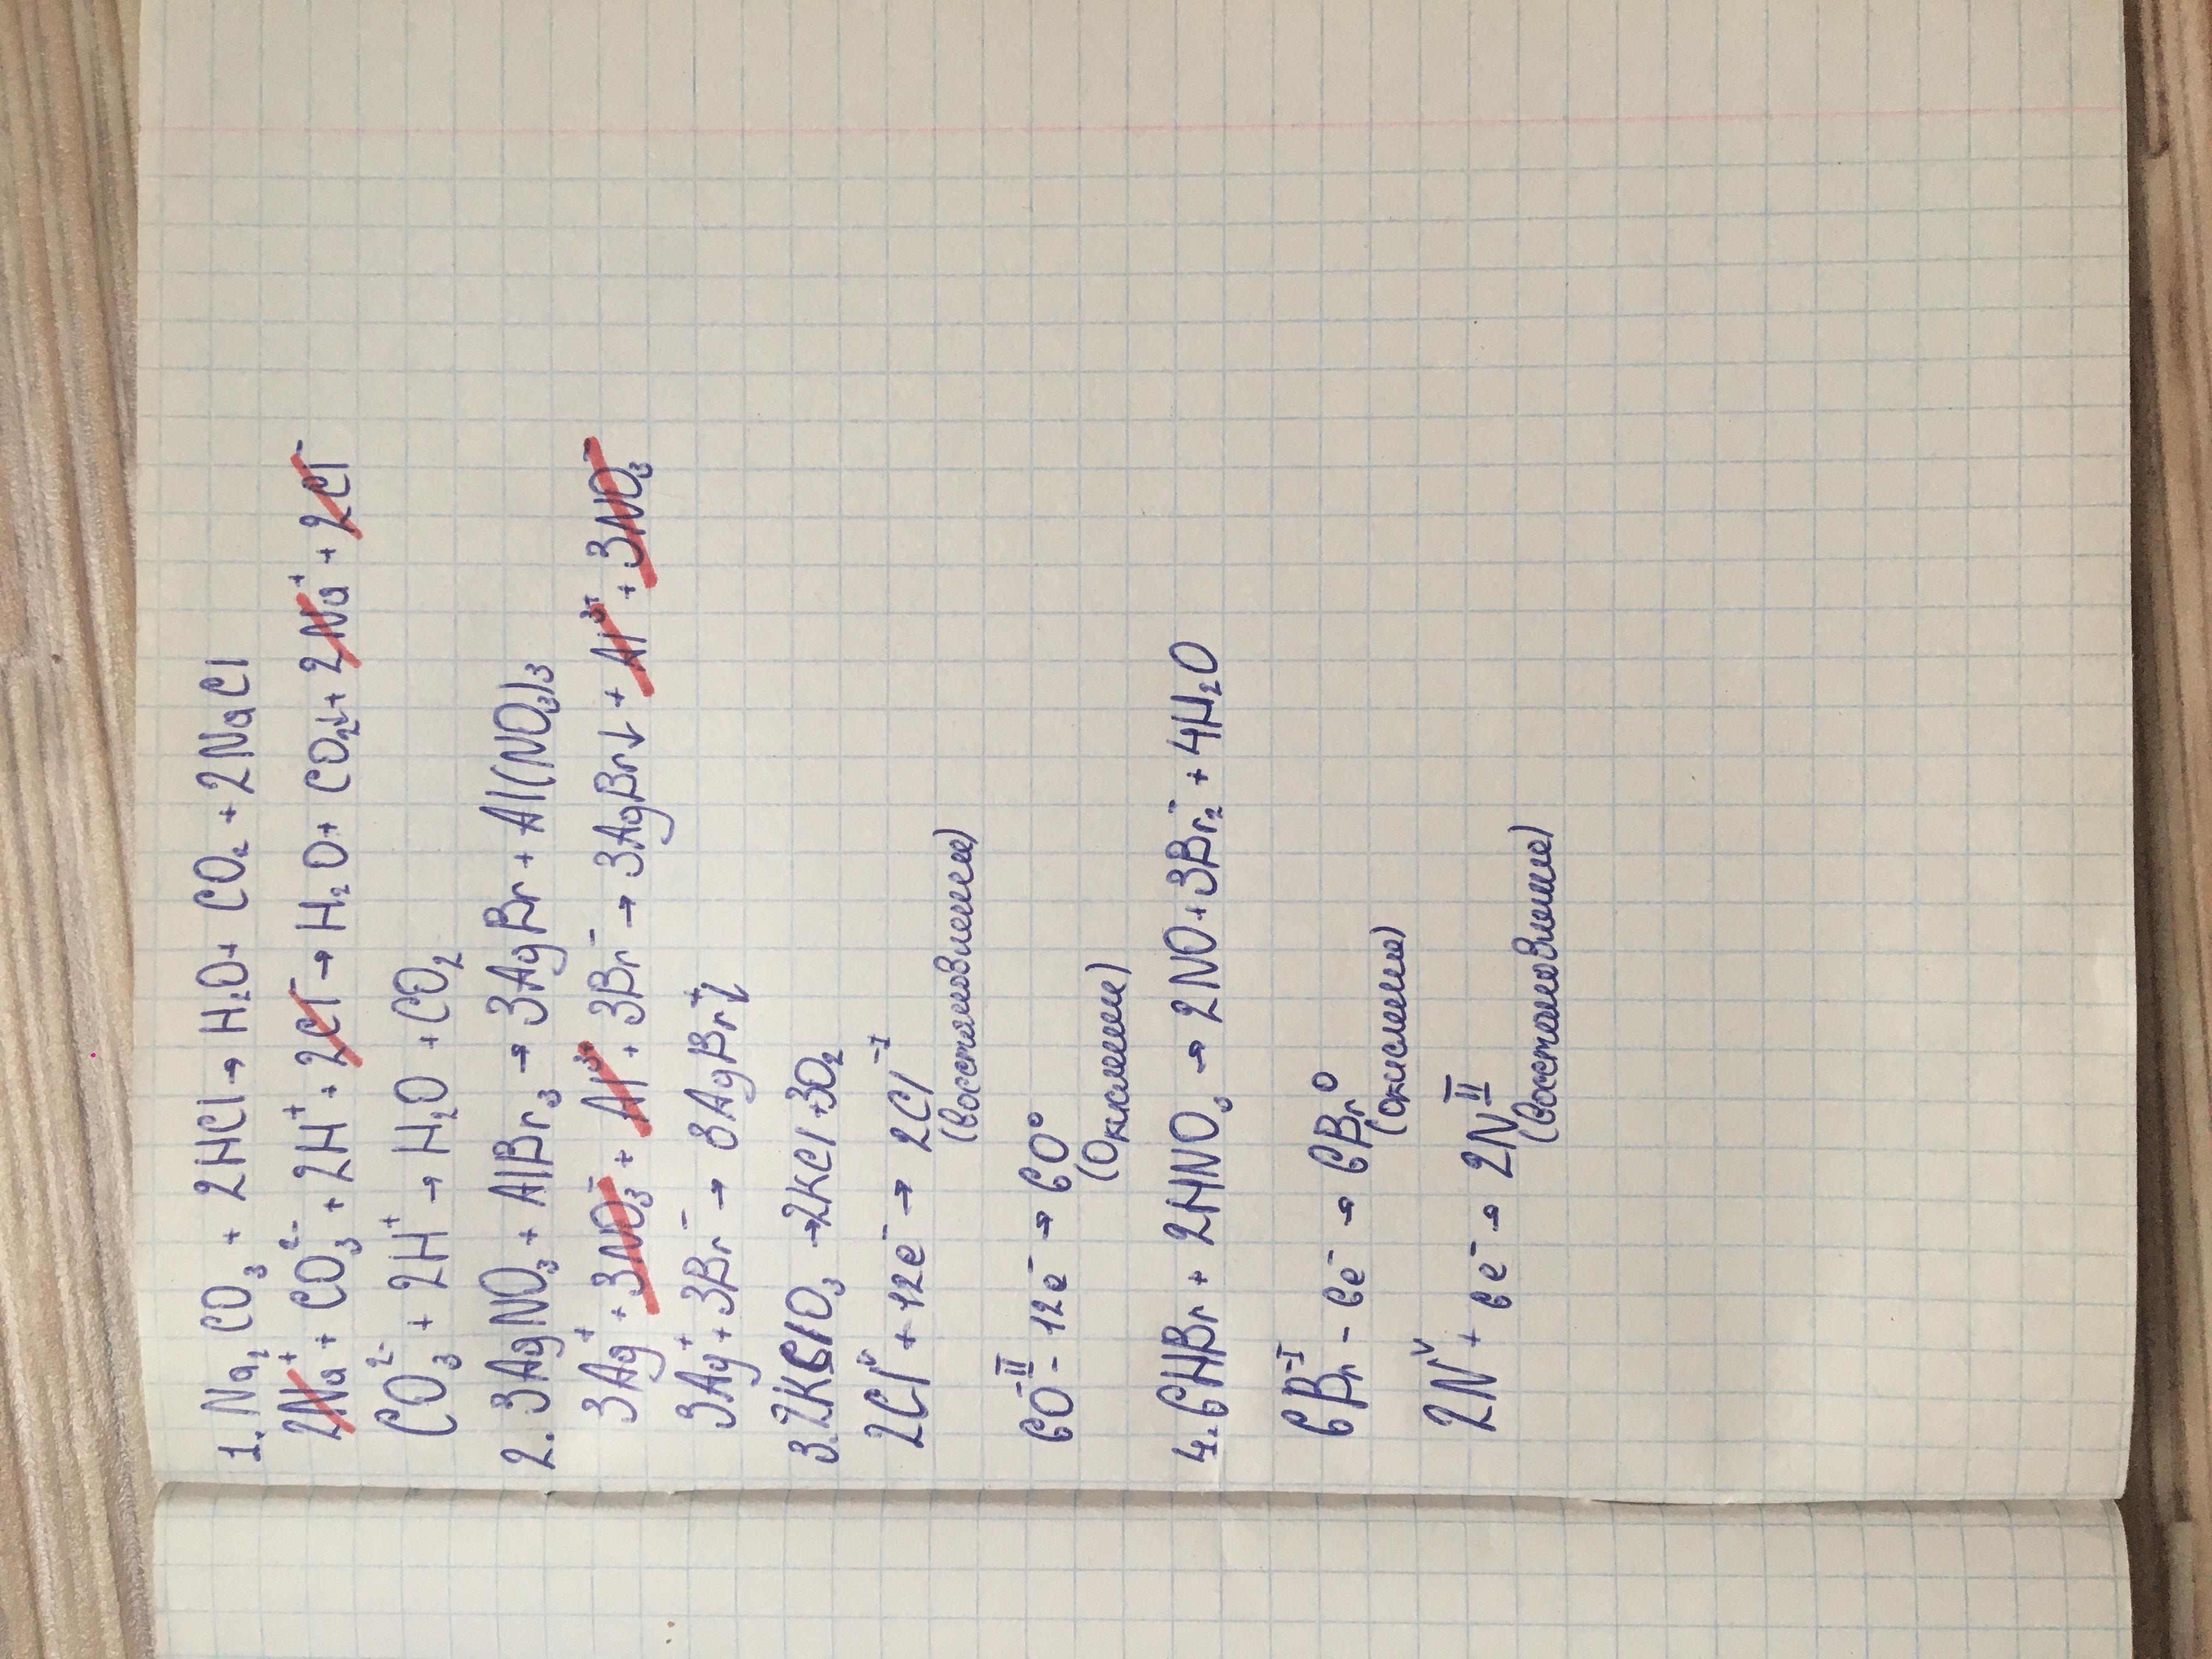 1. Na₂CO₃ + 2HCl → H₂O + CO₂ + 2NaCl
2Na⁺ + CO₃²⁻ + 2H⁺ + 2Cl⁻ → H₂O + CO₂↓ + 2Na⁺ + 2Cl⁻
CO₃²⁻ + 2H⁺ → H₂O + CO₂
2. 3AgNO₃ + AlBr₃ → 3AgBr + Al(NO₃)₃
3Ag⁺ + 3NO₃⁻ + Al³⁺ + 3Br⁻ → 3AgBr↓ + Al³⁺ + 3NO₃⁻
3Ag⁺ + 3Br⁻ → 3AgBr↓
3. 2KClO₃ → 2KCl + 3O₂
2Cl^V + 12e⁻ → 2Cl^-I
(восстановление)
6O^-II - 12e⁻ → 6O⁰
(Окисление)
4. 6HBr + 2HNO₃ → 2NO + 3Br₂⁻ + 4H₂O
6Br^-I - 6e⁻ → 6Br⁰
(окисление)
2N^V + 6e⁻ → 2N^II
(восстановление)